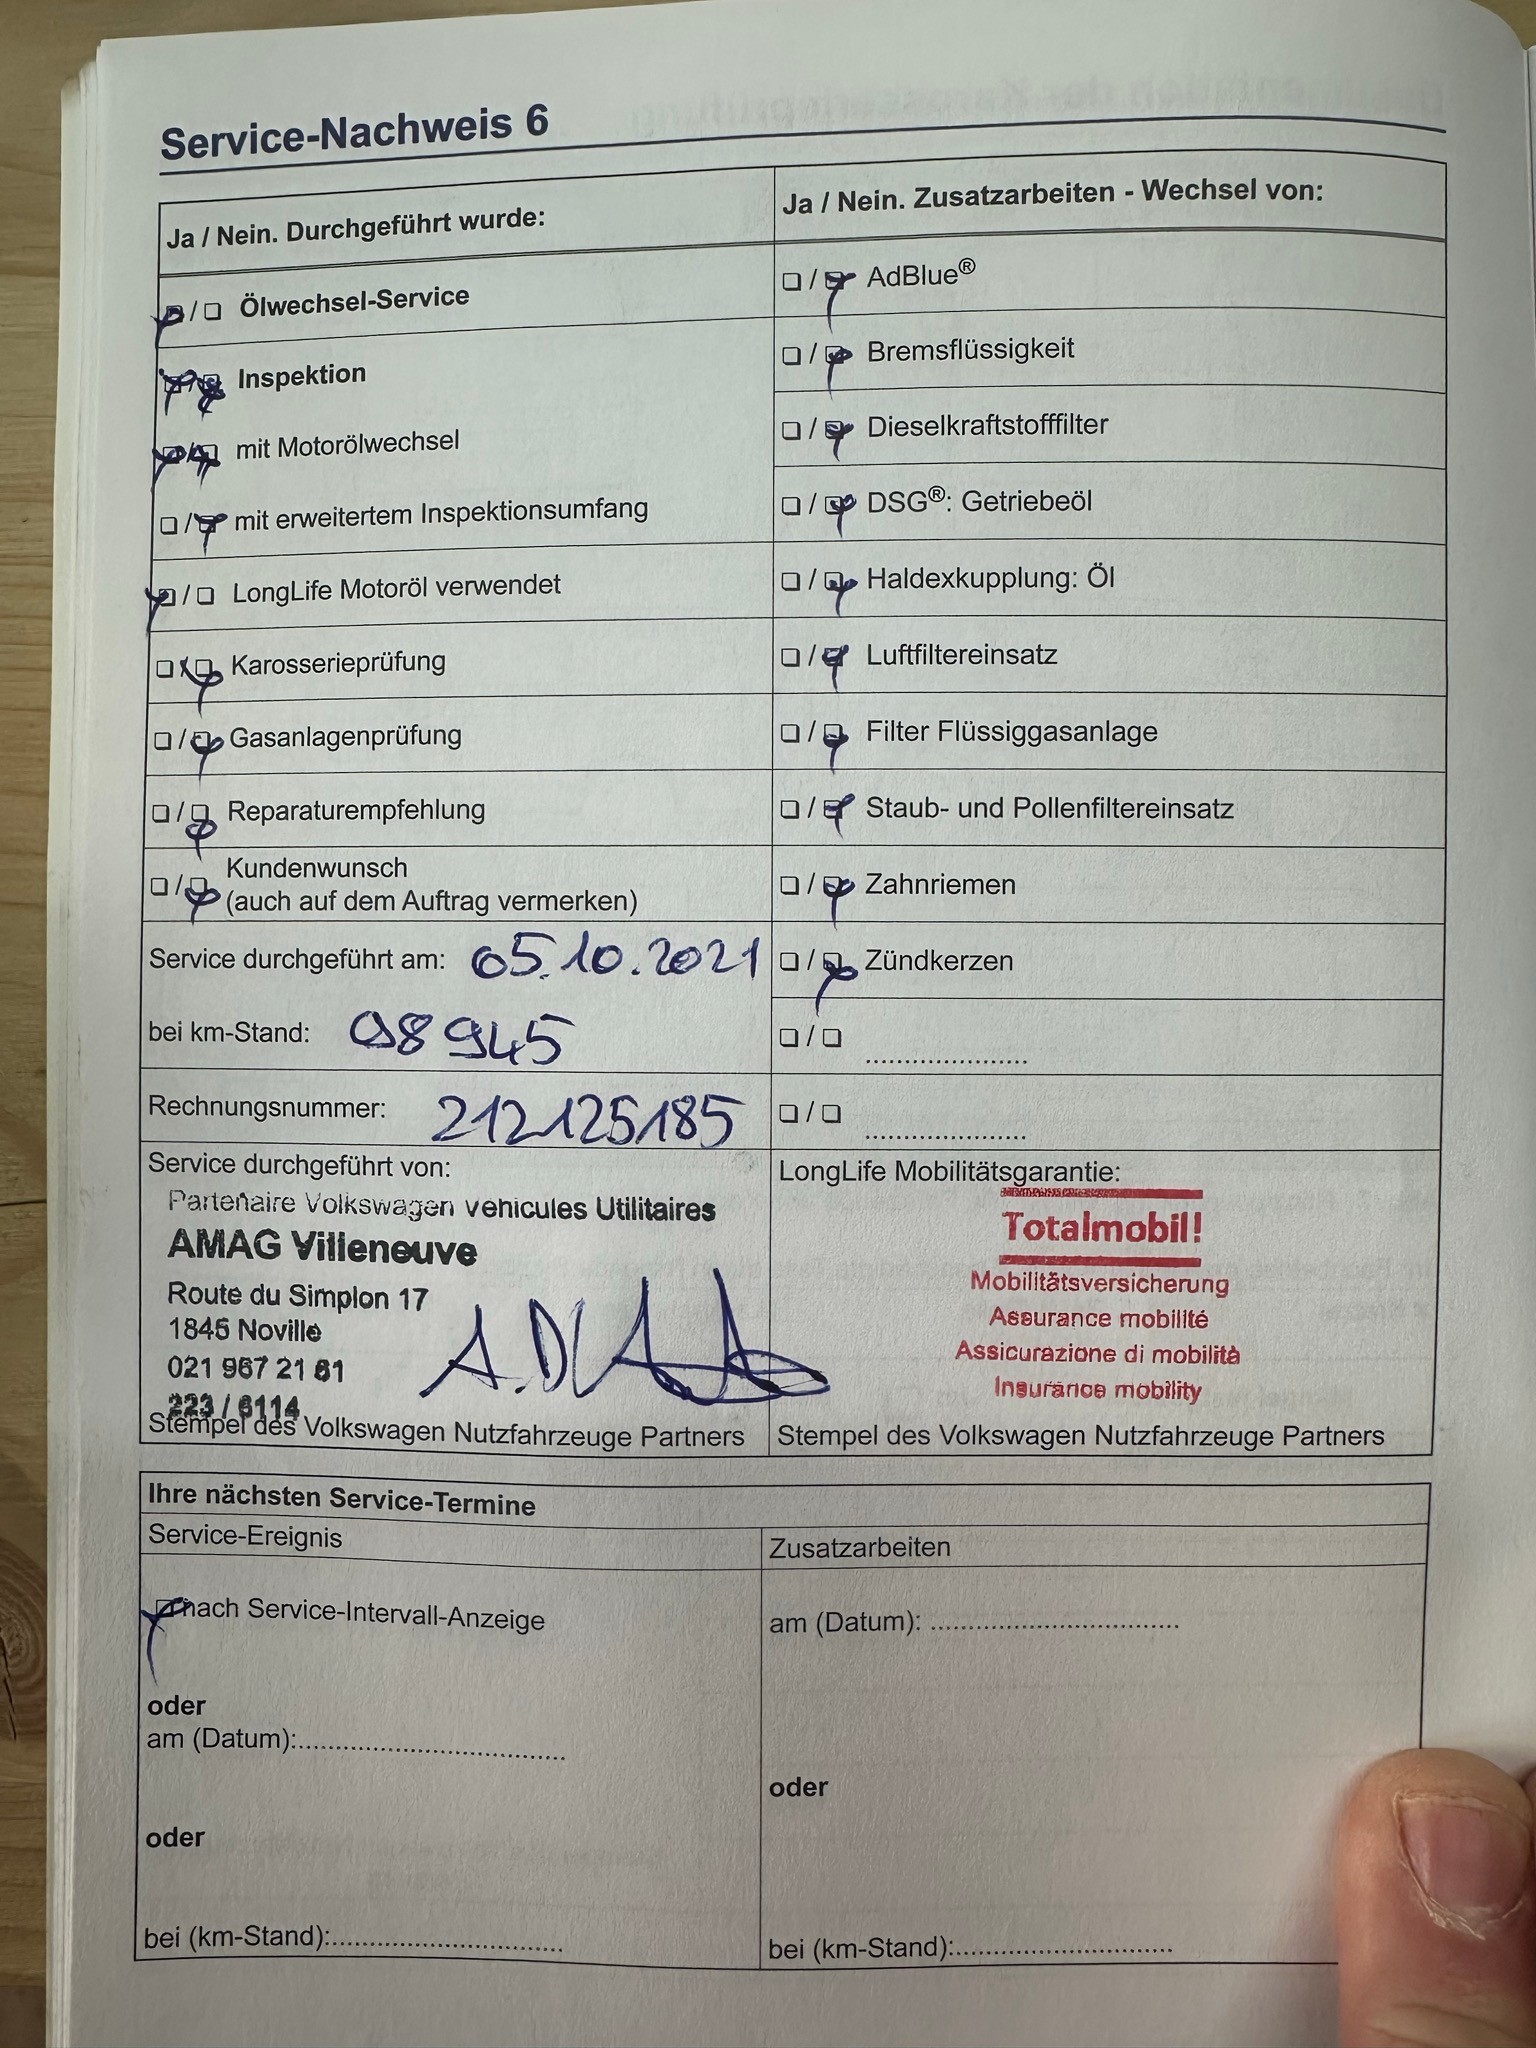 Service-Nachweis 6
Ja / Nein. Durchgeführt wurde:
❏ / ❏ Ölwechsel-Service
❏ / ❏ Inspektion
❏ / ❏ mit Motorölwechsel
❏ / ❏ mit erweitertem Inspektionsumfang
❏ / ❏ LongLife Motoröl verwendet
❏ / ❏ Karosserieprüfung
❏ / ❏ Gasanlagenprüfung
❏ / ❏ Reparaturempfehlung
❏ / ❏ Kundenwunsch
(auch auf dem Auftrag vermerken)
Service durchgeführt am: 05.10.2021
bei km-Stand: 98945
Rechnungsnummer: 212125185
Service durchgeführt von:
Partenaire Volkswagen vehicules Utilitaires
AMAG Villeneuve
Route du Simplon 17
1845 Noville
021 967 21 61
223 / 6114
Stempel des Volkswagen Nutzfahrzeuge Partners
Ja / Nein. Zusatzarbeiten - Wechsel von:
❏ / ❏ AdBlue®
❏ / ❏ Bremsflüssigkeit
❏ / ❏ Dieselkraftstofffilter
❏ / ❏ DSG®: Getriebeöl
❏ / ❏ Haldexkupplung: Öl
❏ / ❏ Luftfiltereinsatz
❏ / ❏ Filter Flüssiggasanlage
❏ / ❏ Staub- und Pollenfiltereinsatz
❏ / ❏ Zahnriemen
❏ / ❏ Zündkerzen
❏ / ❏ .....................
❏ / ❏ .....................
LongLife Mobilitätsgarantie:
Totalmobil!
Mobilitätsversicherung
Assurance mobilité
Assicurazione di mobilità
Insurance mobility
Stempel des Volkswagen Nutzfahrzeuge Partners
Ihre nächsten Service-Termine
Service-Ereignis
❏ nach Service-Intervall-Anzeige
oder
am (Datum):..................................
oder
bei (km-Stand):..............................
Zusatzarbeiten
am (Datum): ................................
oder
bei (km-Stand):............................